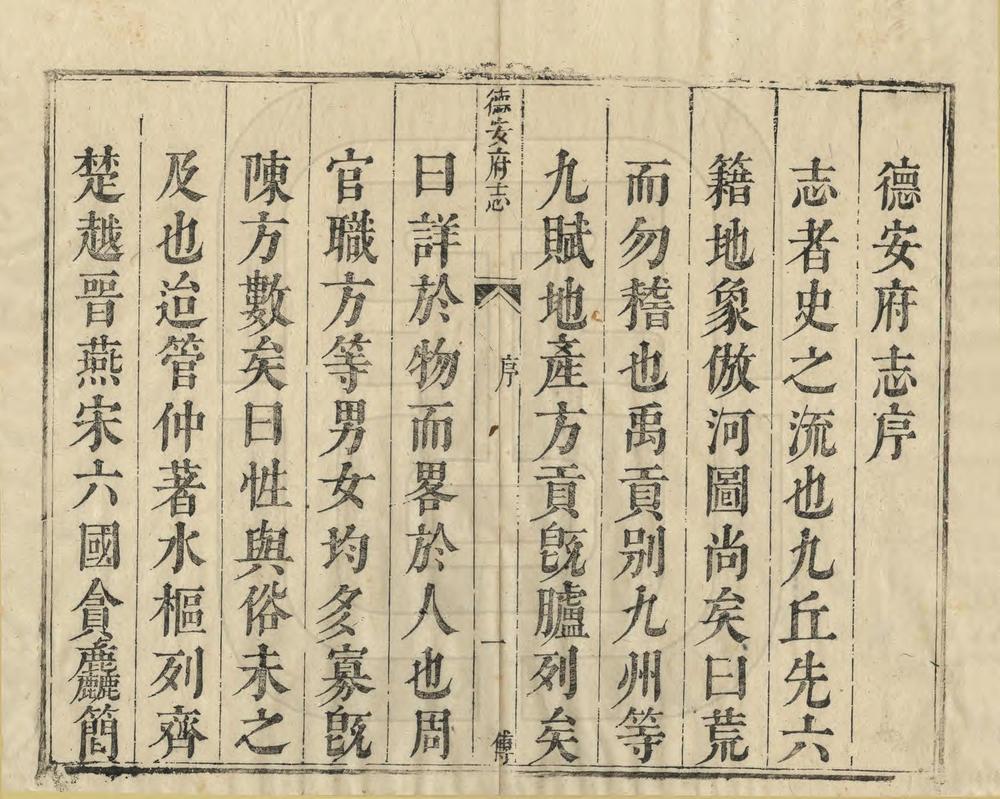 德安府志序
志者史之流也九丘先六
籍地象倣河圖尚矣曰荒
而勿稽也禹貢別九州等
九賦地產方貢旣臚列矣
德安府志 序 一 傅
曰詳於物而畧於人也周
官職方等男女均多寡旣
陳方數矣曰性與俗未之
及也迨管仲著水樞列齊
楚越晉燕宋六國貪麤簡